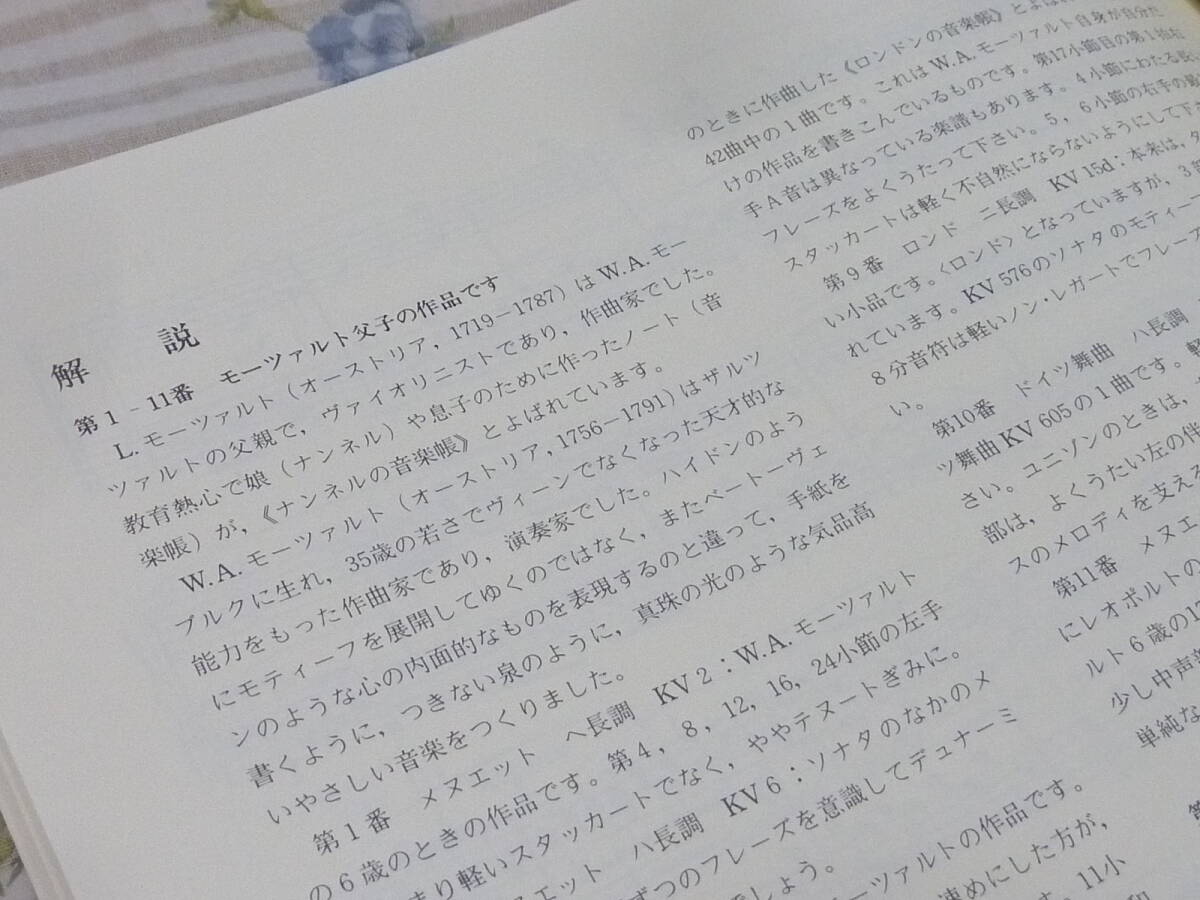 解　説
第1-11番　モーツァルト父子の作品です
L.モーツァルト（オーストリア，1719−1787）はW.A.モー
ツァルトの父親で，ヴァイオリニストであり，作曲家でした。
教育熱心で娘（ナンネル）や息子のために作ったノート（音
楽帳）が，《ナンネルの音楽帳》とよばれています。
W.A.モーツァルト（オーストリア，1756−1791）はザルツ
ブルクに生れ，35歳の若さでヴィーンでなくなった天才的な
能力をもった作曲家であり，演奏家でした。ハイドンのよう
にモティーフを展開してゆくのではなく，またベートーヴェ
ンのような心の内面的なものを表現するのと違って，手紙を
書くように，つきない泉のように，真珠の光のような気品高
いやさしい音楽をつくりました。
第1番　メヌエット　ヘ長調　KV2：W.A.モーツァルト
の6歳のときの作品です。第4，8，12，16，24小節の左手
まり軽いスタッカートでなく，ややテヌートぎみに。
ヌエット　ハ長調　KV6：ソナタのなかのメ
ずつのフレーズを意識してデュナーミ
でしょう。
ーツァルトの作品です。
速めにした方が，
す。11小
のときに作曲した《ロンドンの音楽帳》とよば
42曲中の1曲です。これはW.A.モーツァルト自身が自分だ
けの作品を書きこんでいるものです。第17小節目の第1拍右
手A音は異なっている楽譜もあります。4小節にわたる長
フレーズをよくうたって下さい。5，6小節の右手の
スタッカートは軽く不自然にならないようにして下
第9番　ロンド　ニ長調　KV15d：本来は，
い小品です。〈ロンド〉となっていますが，3部
れています。KV576のソナタのモティー
8分音符は軽いノン・レガートでフレー
い。
第10番　ドイツ舞曲　ハ長調
ツ舞曲KV605の1曲です。
さい。ユニゾンのときは，
部は，よくうたい左の伴
スのメロディを支える
第11番　メヌエ
にレオポルトの
ルト6歳の
少し中声部
単純な